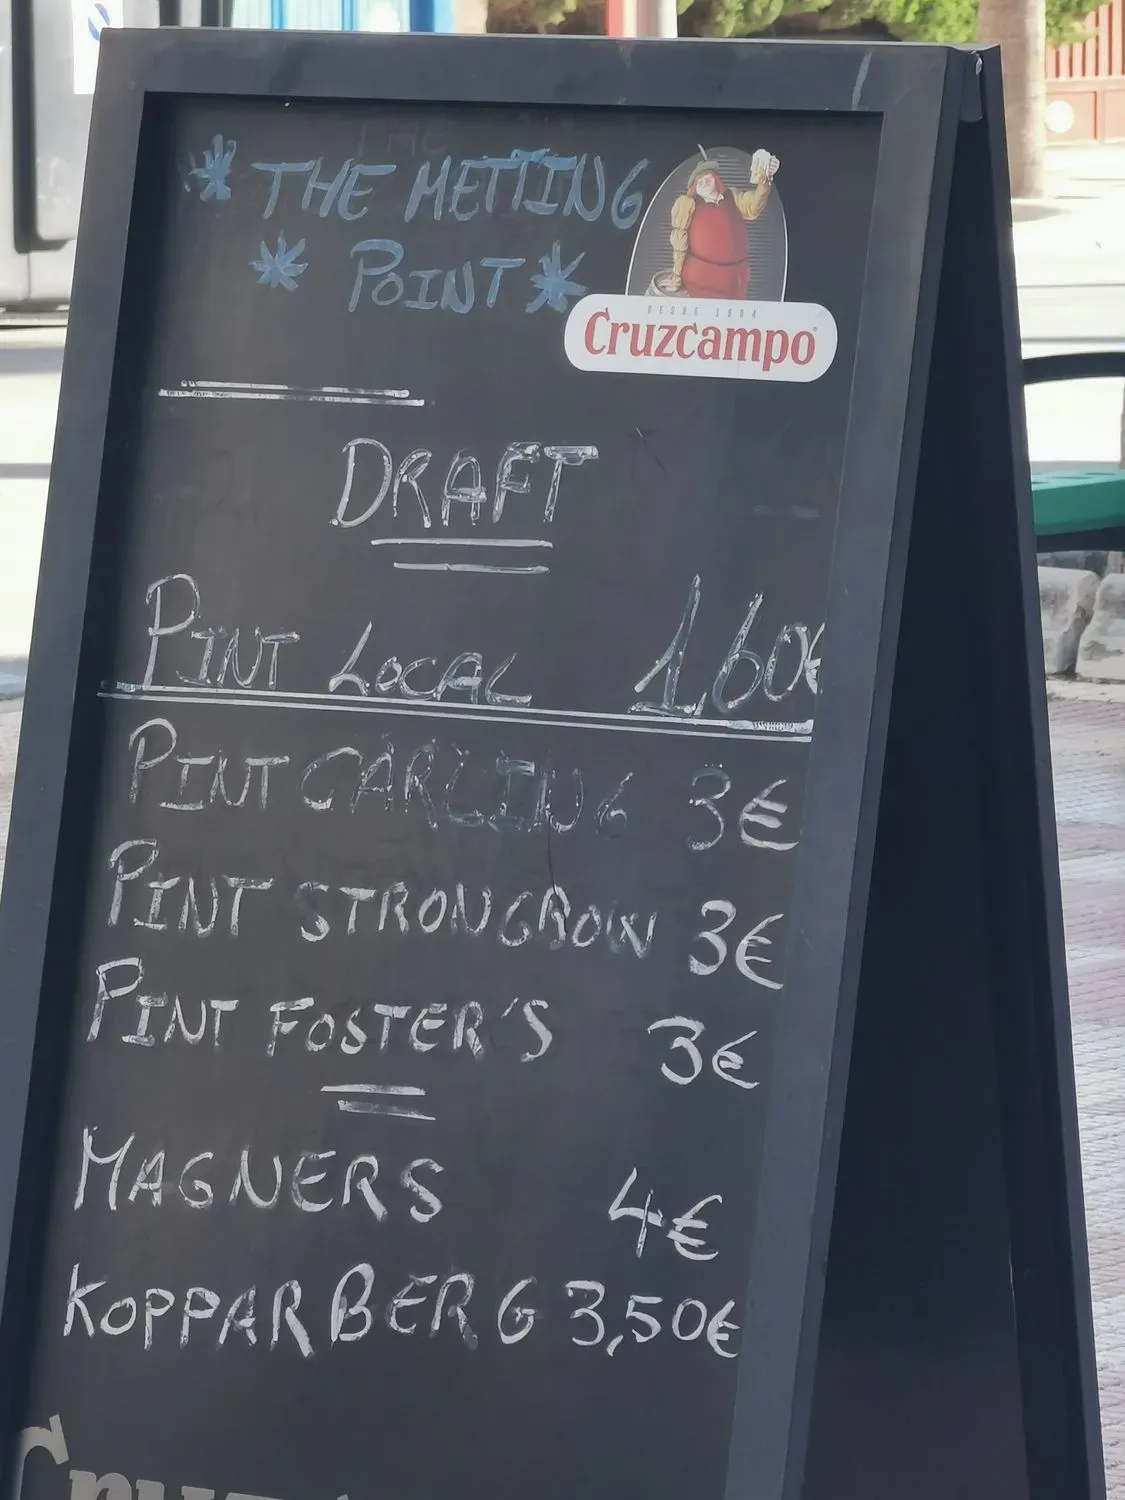 * THE METTING
* POINT *
DESDE 1904
Cruzcampo
DRAFT
PINT LOCAL 1,60€
PINT CARLING 3€
PINT STRONGBOW 3€
PINT FOSTER'S 3€
MAGNERS 4€
KOPPARBERG 3,50€